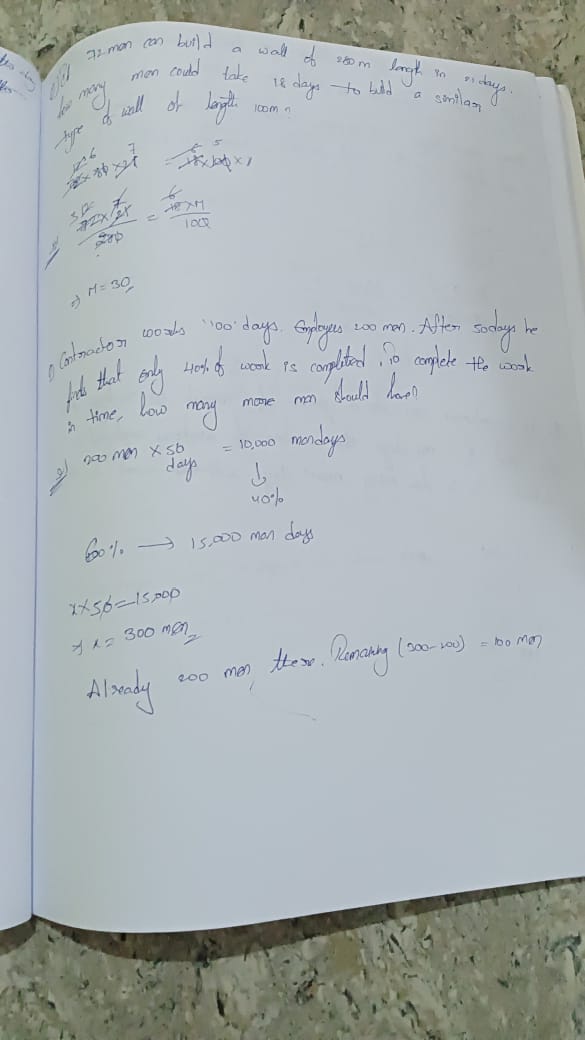 72 men can build a wall of 280m length in 21 days.
how many men could take 18 days to build a similar
type of wall of length 100m?
72×280×21 = 18×100×
72×21 = 18×M
280 100
⇒ M = 30
Contractor works '100' days. Employees 200 men. After 50 days he
finds that only 40% of work is completed. To complete the work
in time, how many more men should have?
200 men × 50 days = 10,000 mandays
↓
40%
60% → 15,000 man days
x×50=15,000
x = 300 men
Already 200 men there. Remaining (300-200) = 100 men